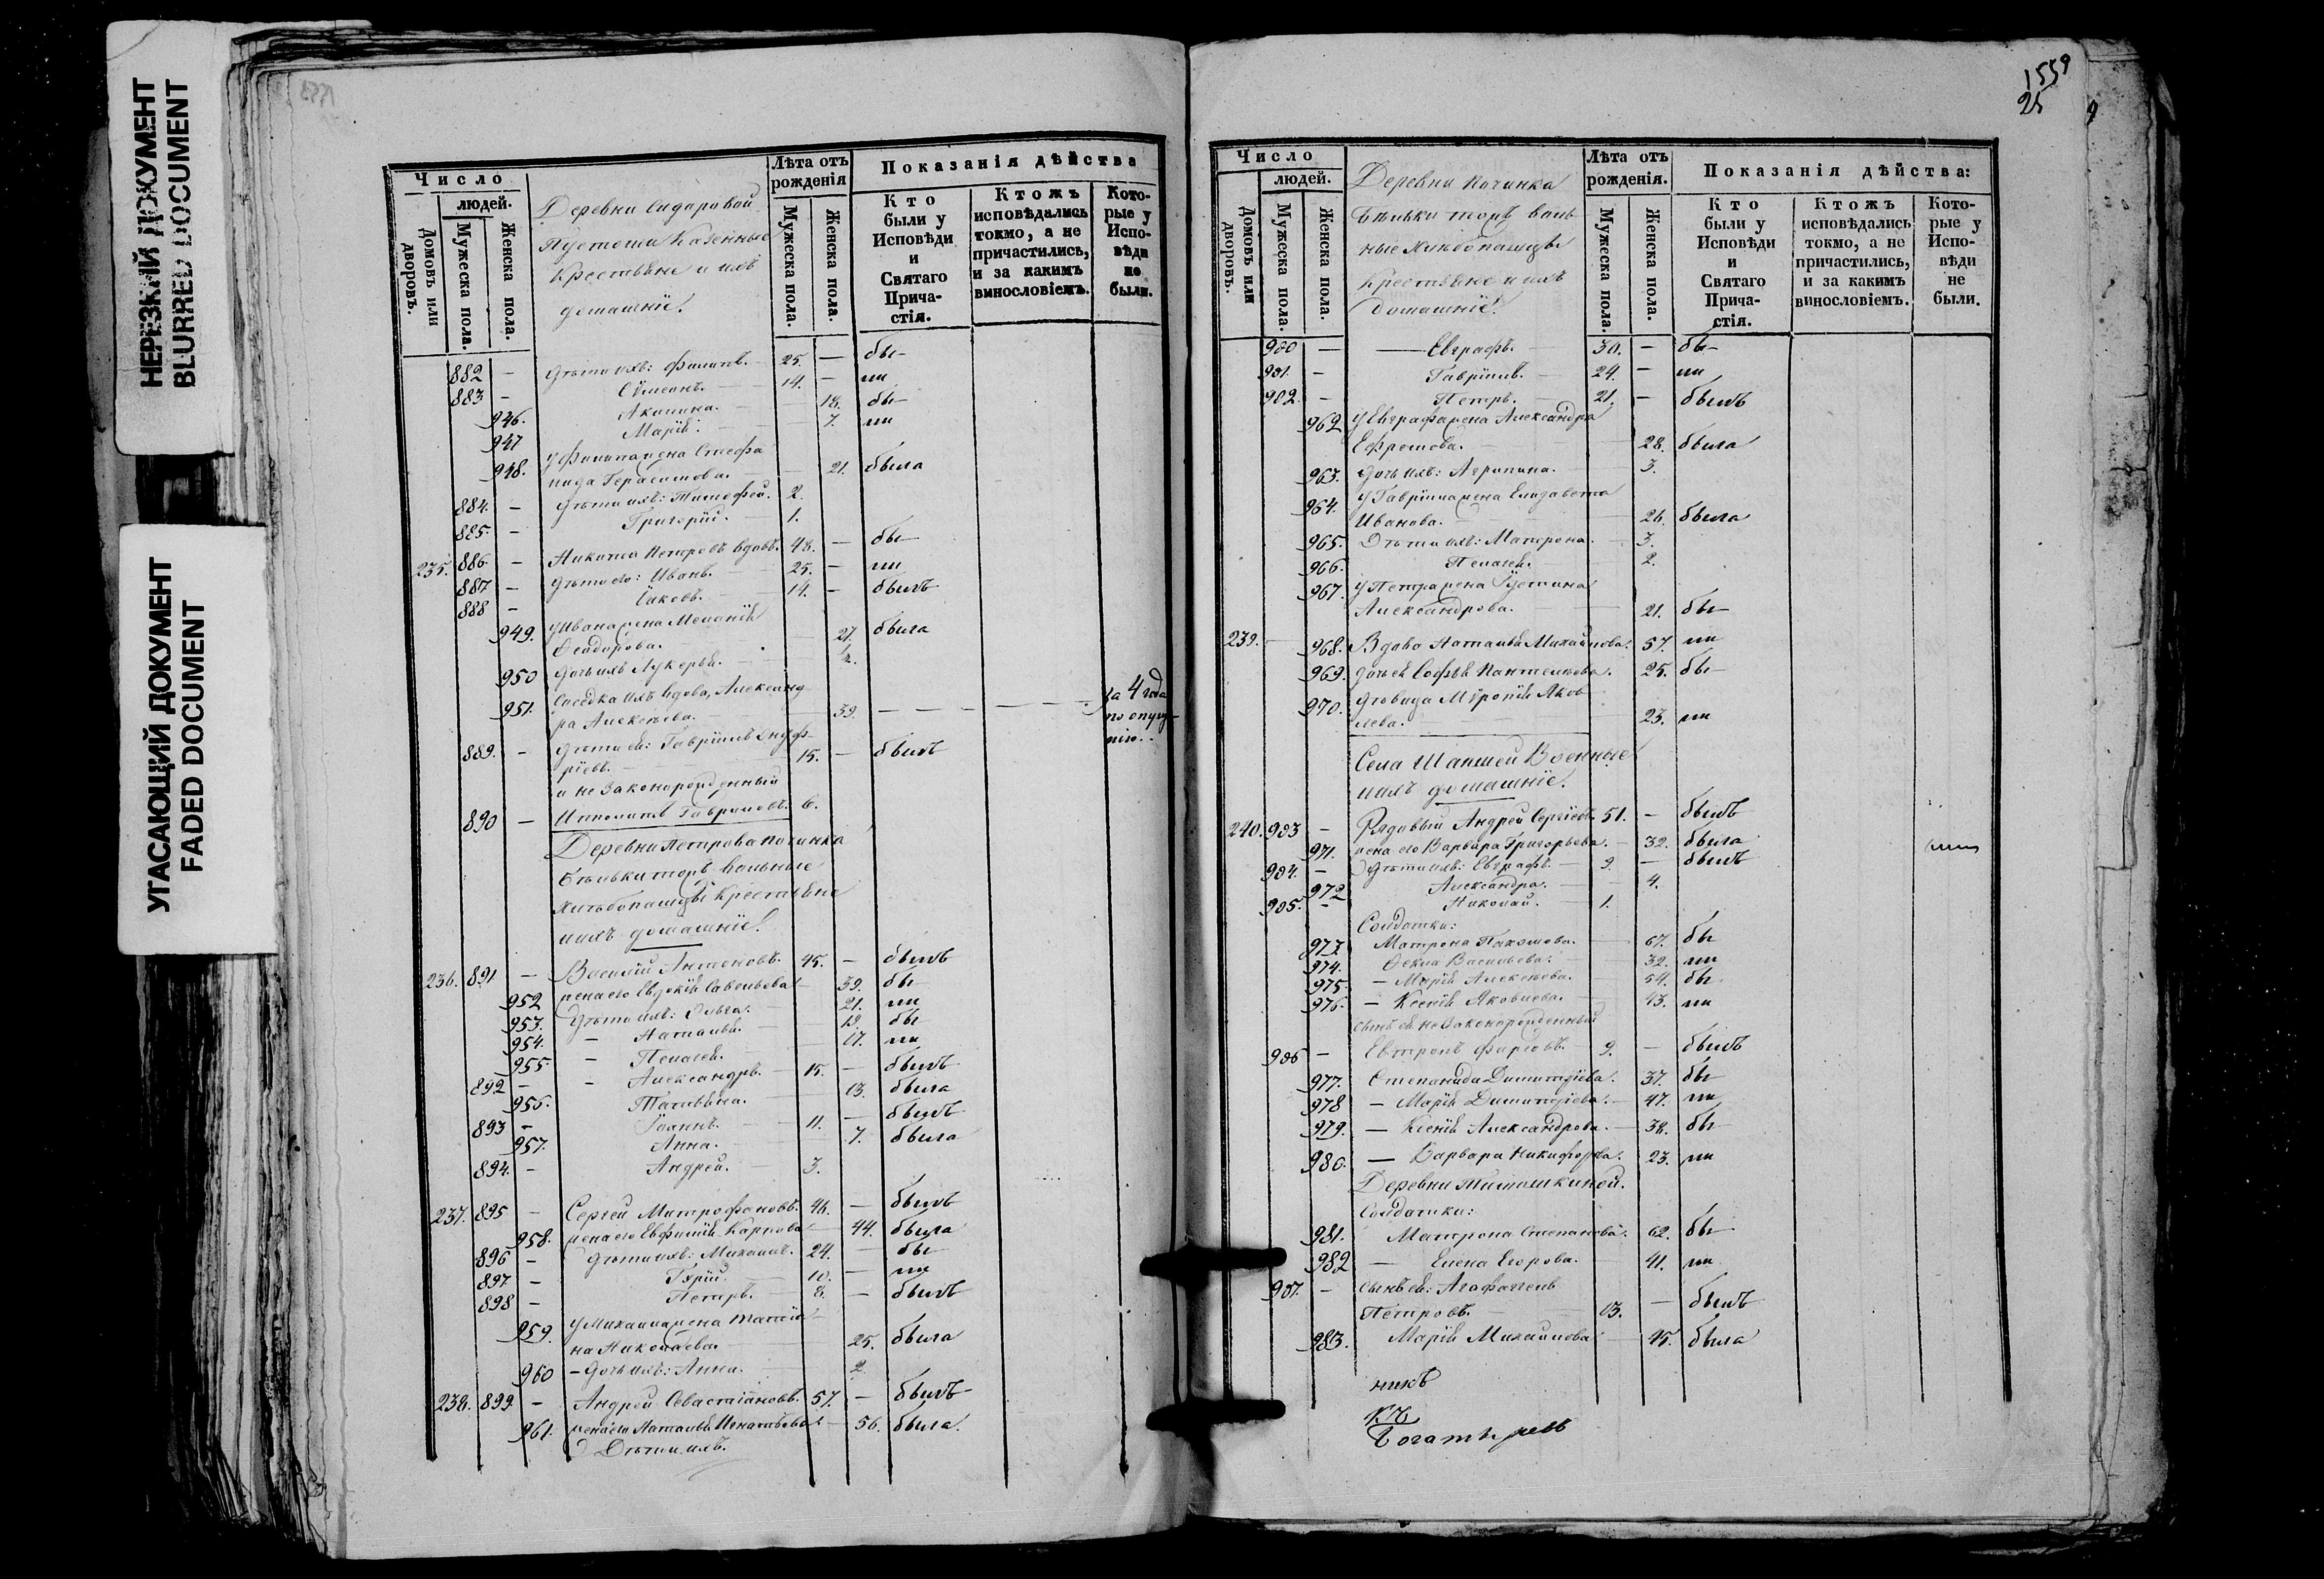 НЕРЕЗКИЙ ДОКУМЕНТ
BLURRED DOCUMENT
УГАСАЮЩИЙ ДОКУМЕНТ
FADED DOCUMENT
Число
людей.
Домовъ или дворовъ.
Мужеска пола.
Женска пола.
Деревни Сидоровой
Пустоши Казенные
Крестьяне и ихъ
домашніе.
Лѣта отъ рожденія
Мужеска пола.
Женска пола.
Показанія дѣйства
Кто были у Исповѣди и Святаго Прича-стія.
Ктожъ исповѣдались токмо, а не причастились, и за какимъ винословіемъ.
Кото-рые у Испо-вѣди не были.
882 — дѣти ихъ: Филипъ. 25. — бы-
883 — Сѵмеонъ. 14. — ли
946. Акилина. 18. бы-
947 Марія. 7. ли
948. у Филипа жена Стефа
нида Герасимова. 21. была
884. — дѣти ихъ: Тимофей. 2.
885. — Григорій. 1.
235. 886. — Никита Петровъ вдовъ. 48. — бы-
887 — дѣти его: Иванъ. 25. — ли
888 — Іаковъ. 14. — былъ
949. у Ивана жена Меланія
Ѳеодорова. 27. была
950 дочь ихъ Лукерья. 1/2.
951. Сноха ихъ вдова, Александ-
ра Алексѣева. 39. за 4 года
по опущ-
нію.
889. — дѣти ея: Гавріилъ Андр-
ріевъ. 15. — былъ
и не законорожденный
890 — Ипполитъ Гавриловъ. 6.
Деревни Петрова Починка
Бѣльки тожъ Вольные
Хлѣбопашцы Крестьяне
и ихъ домашніе.
236. 891 — Василій Антоновъ. 45. — былъ
952 жена его Евдокія Савельева 39. бы-
953. дѣти ихъ: Ольга. 21. ли
954. — Наталья. 19. бы
955. — Пелагея. 17. ли
892 — — Александръ. 15. — былъ
956. Татьяна. 13. была
893 — Іоаннъ. 11. — былъ
957. Анна. 7. была
894. — Андрей. 3.
237. 895 — Сергей Митрофановъ. 46. — былъ
958. жена его Евфимія Карпова 44. была
896 — дѣти ихъ: Михаилъ. 24. — бы
897 — Гурій. 10. — ли
898 — Петръ. 8. — былъ
959. у Михаила жена Татія-
на Николаева. 25. была
960 — дочь ихъ: Анна. 2
238. 899. — Андрей Севастіановъ. 57. — былъ
961. жена его Наталья Игнатьева 56. была.
Дѣти ихъ.
1559
25
Число
людей.
Домовъ или дворовъ.
Мужеска пола.
Женска пола.
Деревни Починка
Бѣльки тожъ воль-
ные хлѣбопашцы
Крестьяне и ихъ
домашніе.
Лѣта отъ рожденія.
Мужеска пола.
Женска пола.
Показанія дѣйства:
Кто были у Исповѣди и Святаго Прича-стія.
Ктожъ исповѣдались токмо, а не причастились, и за какимъ винословіемъ.
Кото-рые у Испо-вѣди не были.
900 — Евграфъ. 30. — бы-
901. — Гавріилъ. 24. — ли
902. — Петръ. 21. — былъ
962 у Евграфа жена Александра
Ефремова. 28. была
963. дочь ихъ: Агрипина. 3.
964. у Гавріила жена Елизавета
Иванова. 26. была
965. Дѣти ихъ: Матрона. 3.
966. Пелагея. 2.
967. у Петра жена Іустина
Александрова. 21. бы-
239. 968. Вдова Наталья Михайлова. 57. ли
969. дочь ея Софья Пантелѣева. 25. бы-
970. дѣвица Мѵропія Яков-
лева. 23. ли
Села Шапшей Военные
и ихъ домашніе.
240. 903 — Рядовый Андрей Сергіевъ. 51. — былъ
971. жена его Варвара Григорьева. 32. была
904. — Дѣти ихъ: Евграфъ. 9. — былъ
972 Александра. 4.
905. — Николай. 1.
Солдатки:
973 Матрона Пахомова. 67. бы
974. Ѳекла Васильева. 32. ли
975. — Марія Алексѣева. 54. бы
976. — Ксенія Яковлева. 43. ли
сынъ ея не законорожденный
906 — Евтропъ Фирсовъ. 9. — былъ
977. Степанида Димитріева. 37. бы
978 — Марія Димитріева. 47. ли
979. — Ксенія Александрова. 38. бы
980. — Варвара Никифорова. 23. ли
Деревни Тимошкиной.
Солдатки:
981. Матрона Степанова. 62. бы
982 — Елена Егорова. 41. ли
907. — сынъ ея: Агафаггелъ
Петровъ. 13. — былъ
983. Марія Михайлова 45. была
никъ
Богатыревъ